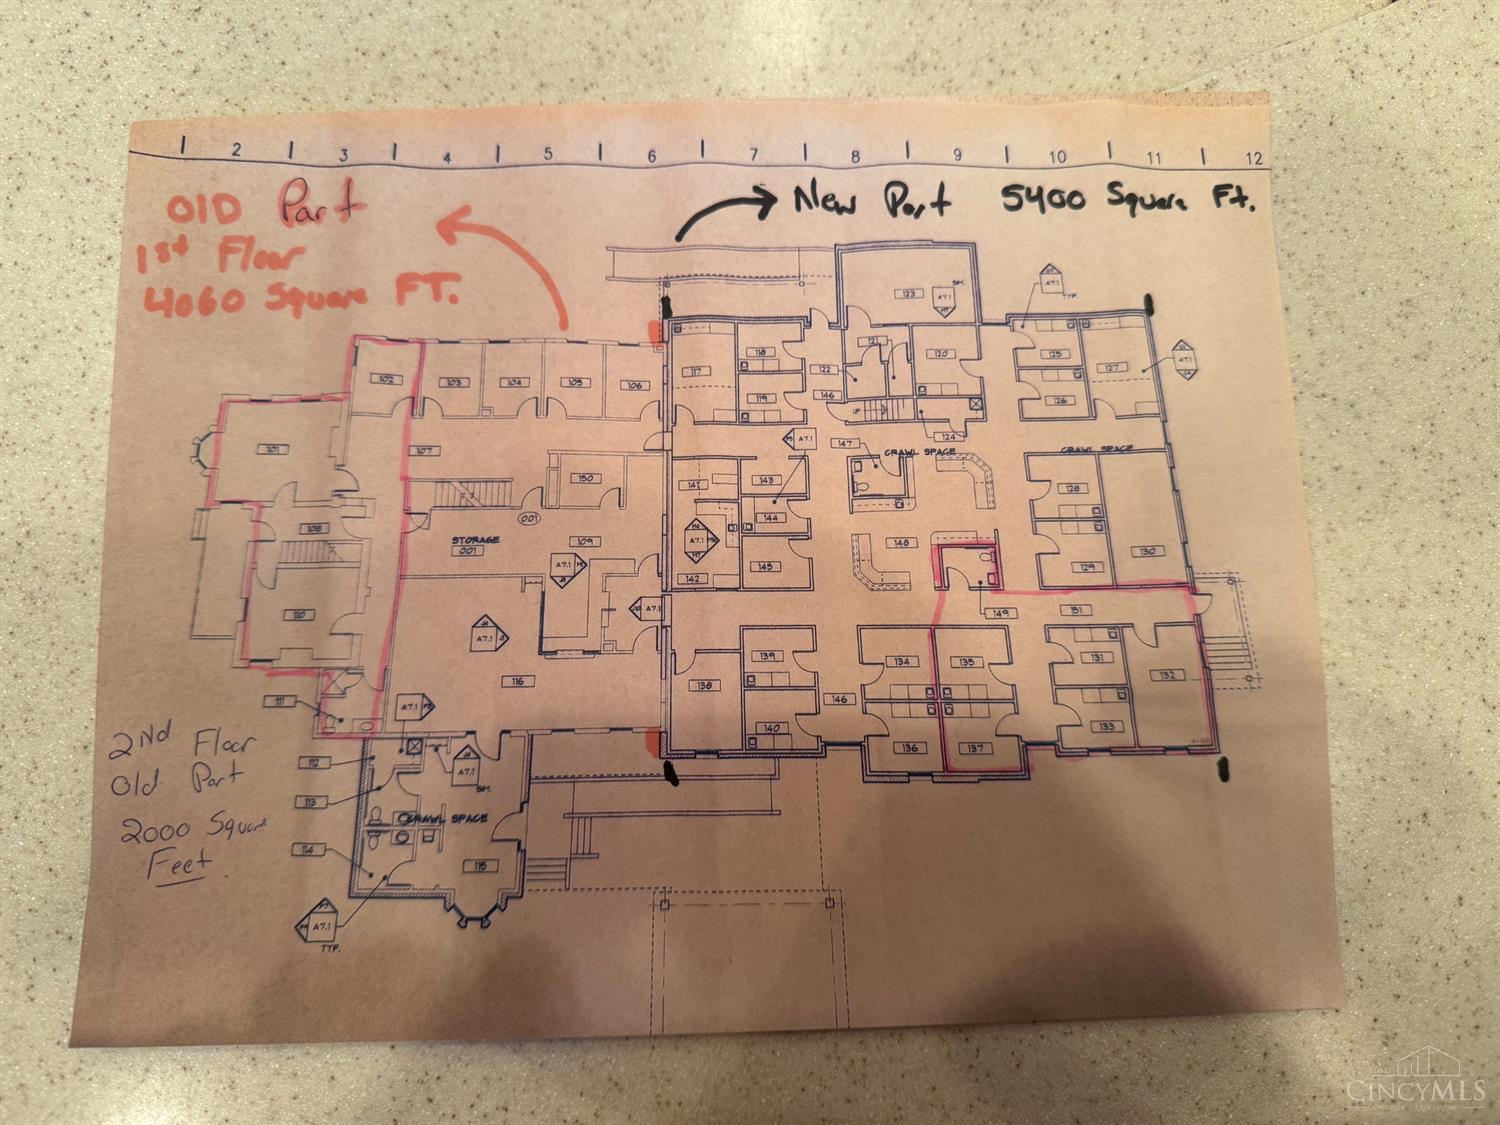 2 3 4 5 6 7 8 9 10 11 12
OLD Part
1st Floor
4060 Square FT.
New Part 5400 Square Ft.
2nd Floor
Old Part
2000 Square
Feet
123
SIM.
A7.1
TYP.
A7.1
A7.1
102
103
104
105
106
117
118
119
122
121
120
125
126
127
146
UP
124
101
107
150
141
143
A7.1
147
CRAWL SPACE
CRAWL SPACE
128
108
001
STORAGE
001
109
A7.1
A7.1
144
142
145
148
129
130
110
A7.1
A7.1
149
151
116
139
138
140
134
135
131
132
146
136
137
133
111
A7.1
112
A7.1
SIM.
113
CRAWL SPACE
114
115
A7.1
TYP.
CINCYMLS